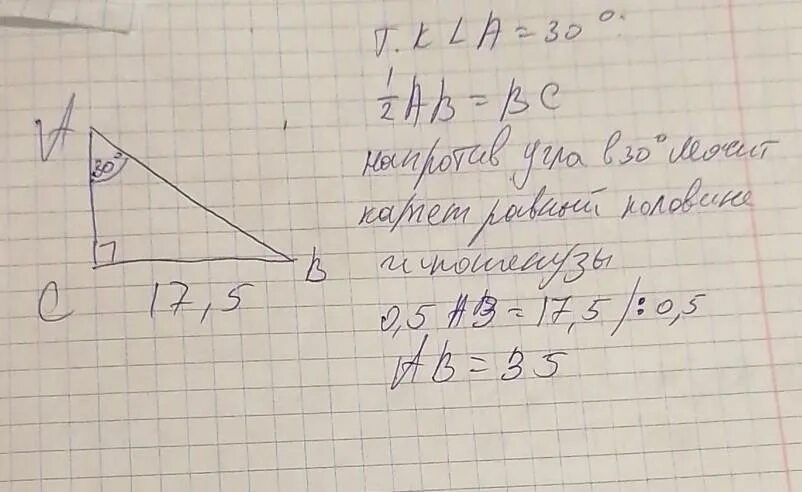 т.к ∠A=30°.
½AB=BC
напротив угла в 30° лежит
катет равный половине
гипотенузы
0,5 AB=17,5 /:0,5
AB=35
A
30°
C 17,5 B